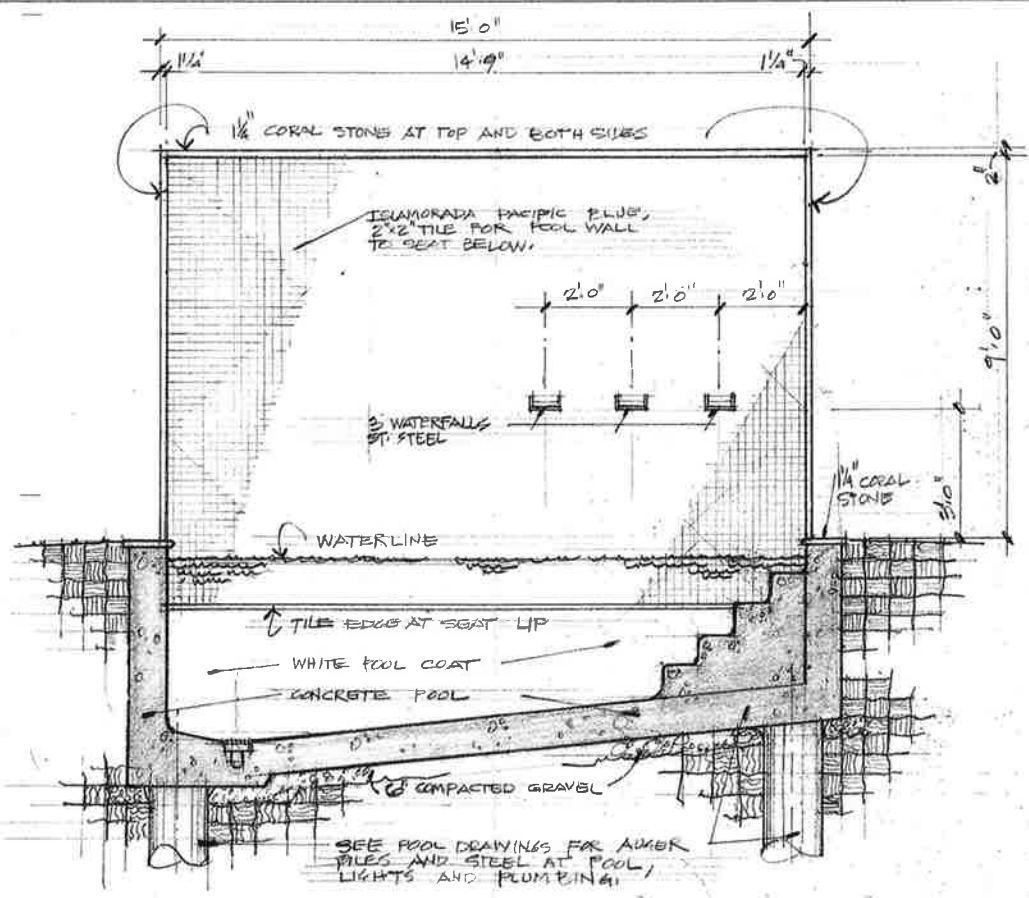 15'0"
1¼" 14'9" 1¼"
1¼" CORAL STONE AT TOP AND BOTH SIDES
2"
ISLAMORADA PACIFIC BLUE,
2"x2" TILE FOR POOL WALL
TO SEAT BELOW.
2'0" 2'0" 2'0"
9'0"
3 WATERFALLS
ST. STEEL
1¼" CORAL
STONE
3'0"
WATERLINE
TILE EDGE AT SEAT LIP
WHITE POOL COAT
CONCRETE POOL
6" COMPACTED GRAVEL
SEE POOL DRAWINGS FOR AUGER
PILES AND STEEL AT POOL,
LIGHTS AND PLUMBING.